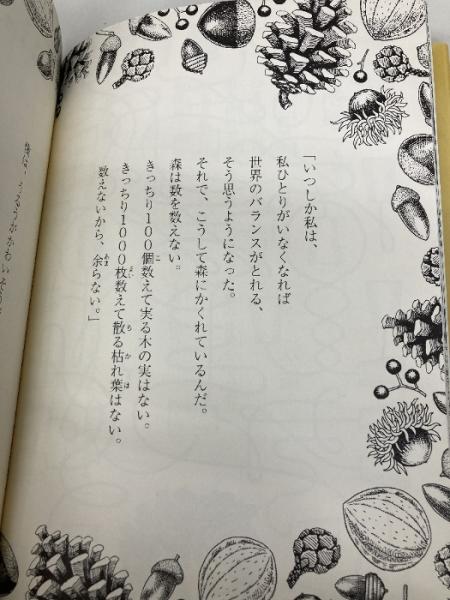 「いつしか私は、
私ひとりがいなくなれば
世界のバランスがとれる、
そう思うようになった。
それで、こうして森にかくれているんだ。
森は数を数えない。
きっちり100個数えて実る木の実はない。
きっちり1000枚数えて散る枯れ葉はない。
数えないから、余らない。」